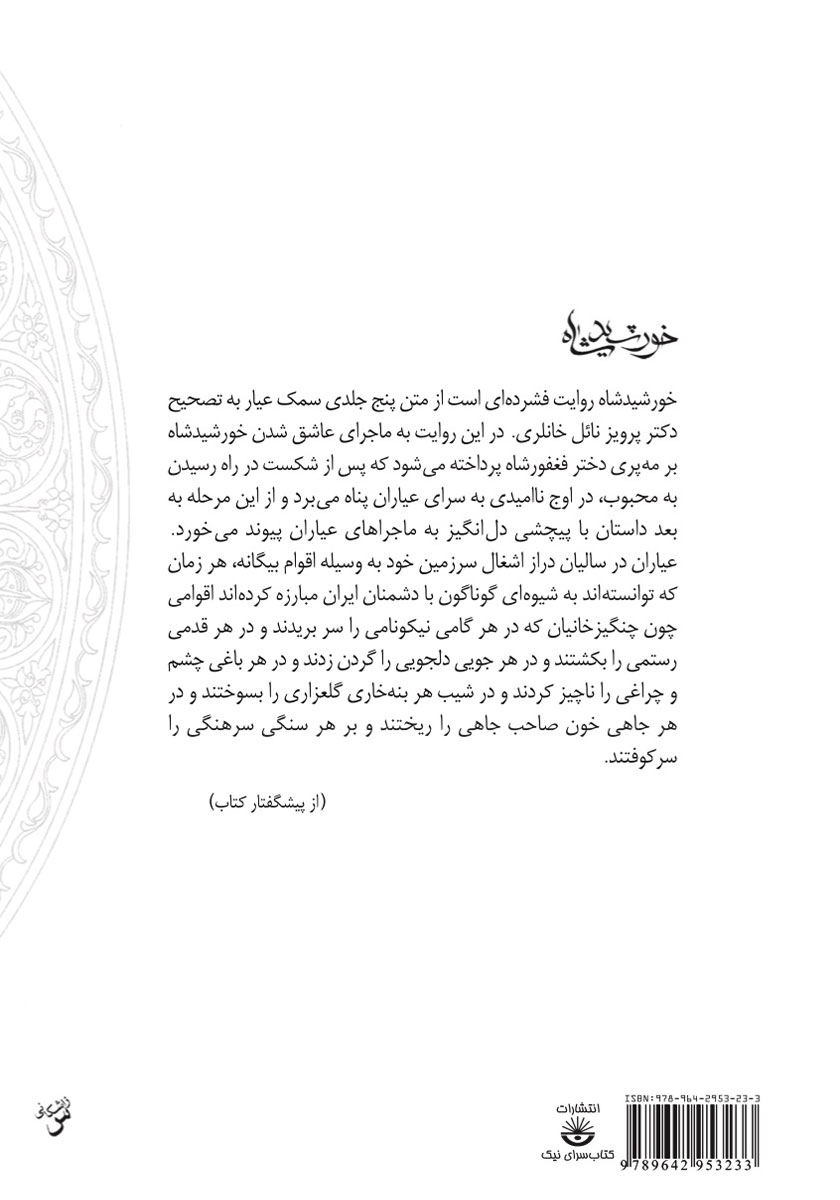 خورشیدشاه
خورشیدشاه روایت فشرده‌ای است از متن پنج جلدی سمک عیار به تصحیح
دکتر پرویز نائل خانلری. در این روایت به ماجرای عاشق شدن خورشیدشاه
بر مه‌پری دختر فغفورشاه پرداخته می‌شود که پس از شکست در راه رسیدن
به محبوب، در اوج ناامیدی به سرای عیاران پناه می‌برد و از این مرحله به
بعد داستان با پیچشی دل‌انگیز به ماجراهای عیاران پیوند می‌خورد.
عیاران در سالیان دراز اشغال سرزمین خود به وسیله اقوام بیگانه، هر زمان
که توانسته‌اند به شیوه‌ای گوناگون با دشمنان ایران مبارزه کرده‌اند اقوامی
چون چنگیزخانیان که در هر گامی نیکونامی را سر بریدند و در هر قدمی
رستمی را بکشتند و در هر جویی دلجویی را گردن زدند و در هر باغی چشم
و چراغی را ناچیز کردند و در شیب هر بنه‌خاری گلعزاری را بسوختند و در
هر جاهی خون صاحب جاهی را ریختند و بر هر سنگی سرهنگی را
سرکوفتند.
(از پیشگفتار کتاب)
ISBN:978-964-2953-23-3
انتشارات
کتاب‌سرای نیک
9 789642 953233